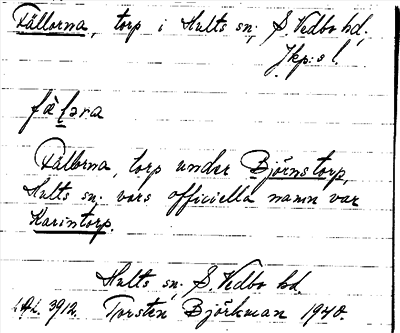 Fällorna, torp i Hults sn, S. Vedbo hd,
Jkp:s l.
fälɔra
Fällorna, torp under Björnstorp,
Hults sn. vars officiella namn var
Karintorp.
Hults sn. S. Vedbo hd.
3912. Torsten Björkman 1940.